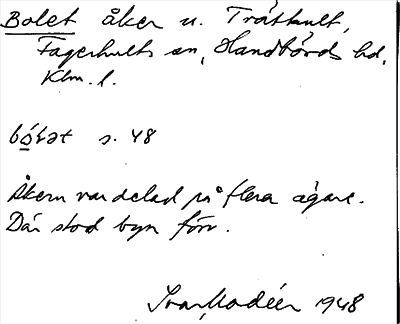 Bolet åker u. Tråthult,
Fagerhults sn, Handbörds hd,
Klm. l.
s. 48
Åkern var delad på flera ägare.
Där stod byn förr.
Ivar Modéer 1948